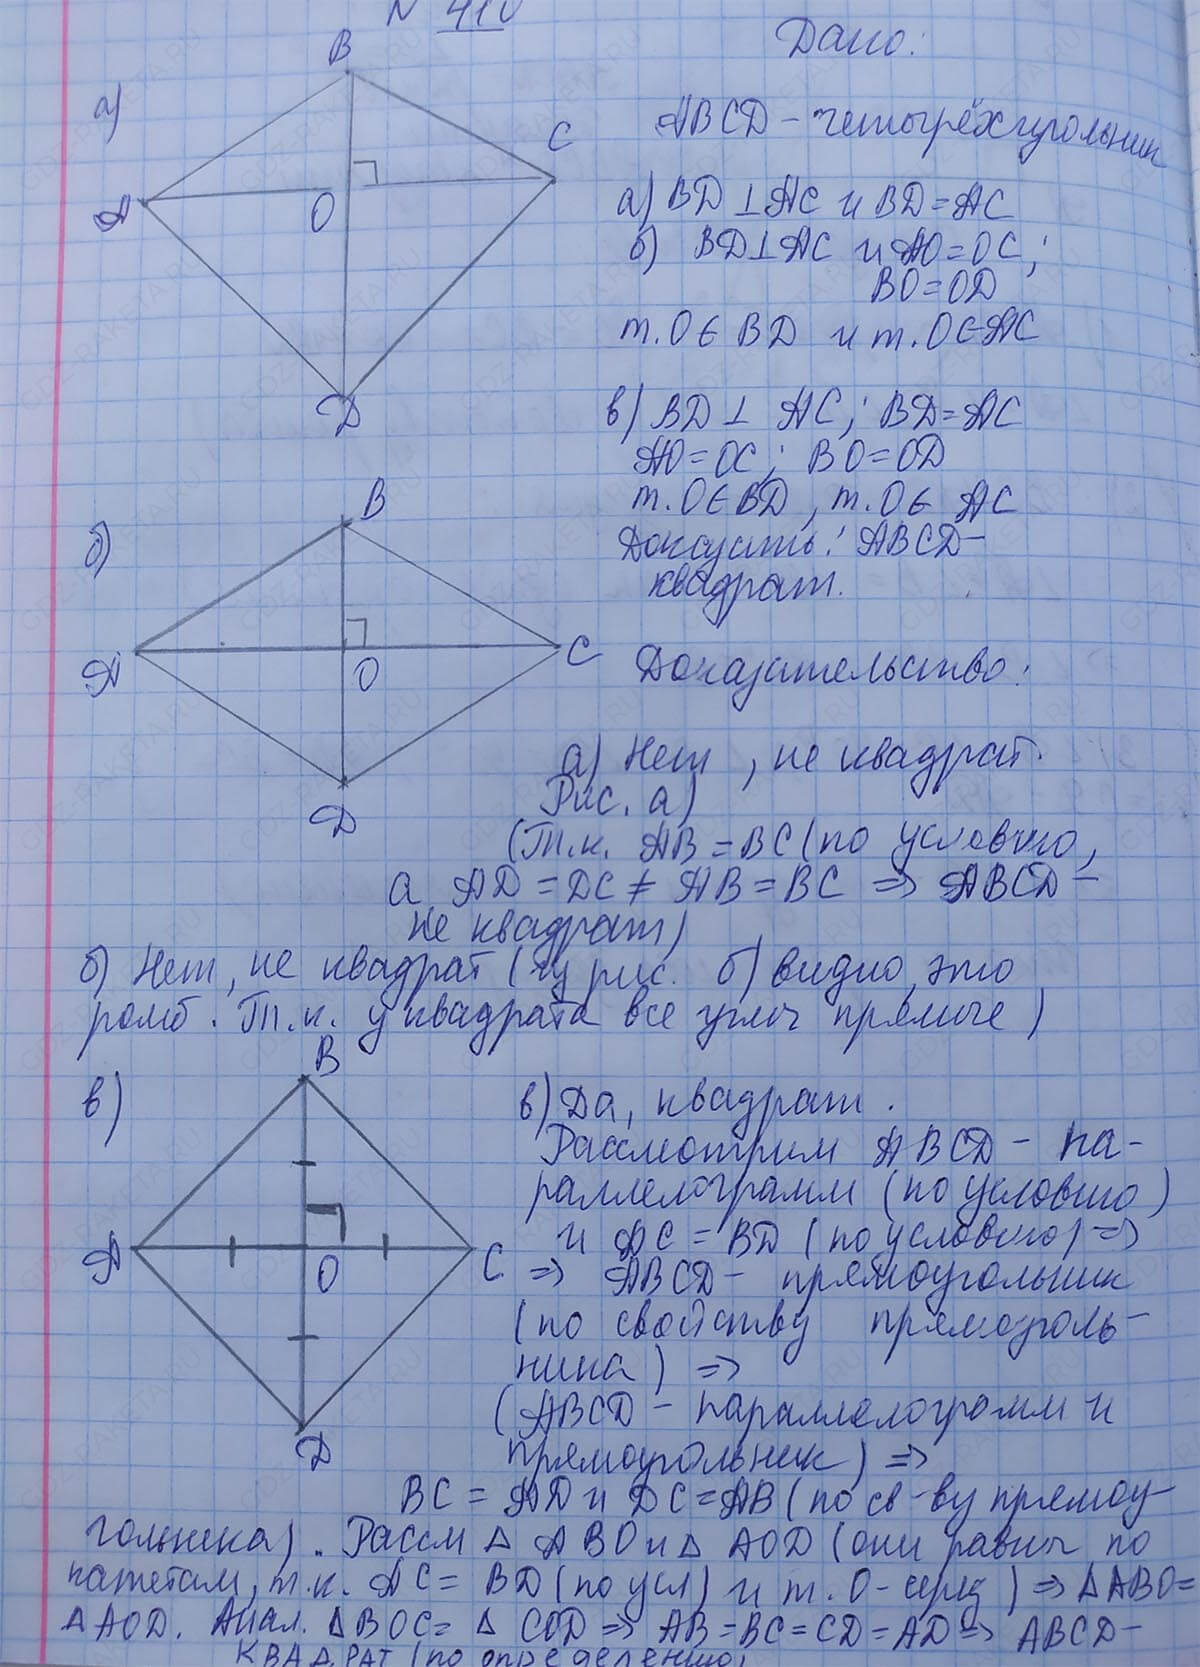 N 410
Дано:
а)
B
C
A
O
D
ABCD – четырёхугольник
а) BD ⊥ AC и BD = AC
б) BD ⊥ AC и AO = OC;
BO = OD
т. O ∈ BD и т. O ∈ AC
в) BD ⊥ AC; BD = AC
AO = OC; BO = OD
т. O ∈ BD, т. O ∈ AC
Доказать: ABCD –
квадрат.
б)
B
A
O
C
D
Доказательство:
а) Нет, не квадрат.
Рис. а)
(Т.к. AB = BC (по условию,
а AD = DC ≠ AB = BC => ABCD –
не квадрат)
б) Нет, не квадрат (из рис. б) видно, это
ромб. Т.к. у квадрата все углы прямые)
в)
B
A
O
C
D
в) Да, квадрат.
Рассмотрим ABCD – па-
раллелограмм (по условию)
и AC = BD (по условию) =>
=> ABCD – прямоугольник
(по свойству прямоуголь-
ника) =>
(ABCD – параллелограмм и
прямоугольник) =>
BC = AD и DC = AB (по св-ву прямоу-
гольника). Рассм △ ABO и △ AOD (они равны по
катетам, т.к. AC = BD (по усл) и т. O – серед) => △ABO =
△AOD. Анал. △BOC = △ COD => AB = BC = CD = AD => ABCD –
КВАДРАТ (по определению)